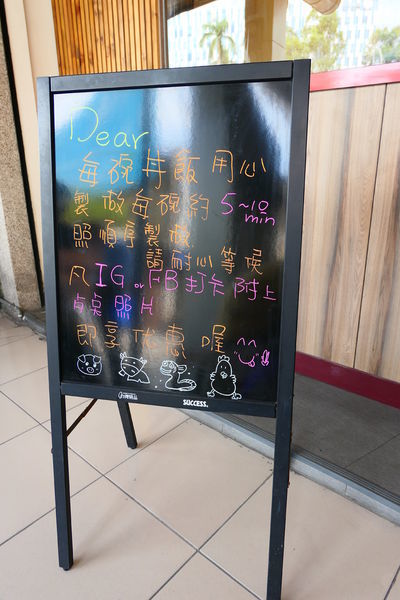 Dear
每碗丼飯用心
製做每碗約5~10min
照順序製做
請耐心等候
凡IG or FB打卡附上
桌照片
即享优惠喔^^
SUCCESS.